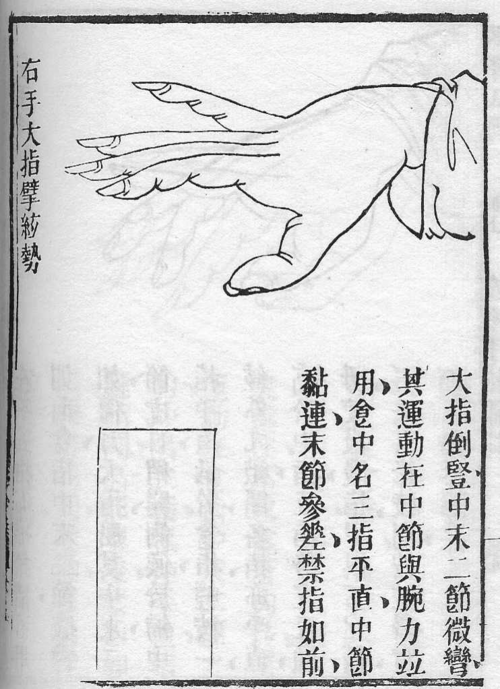 右手大指擘絃勢
大指倒豎、中末二節微彎、
其運動在中節與腕力並
用、食中名三指平直、中節
黏連、末節參差、禁指如前、